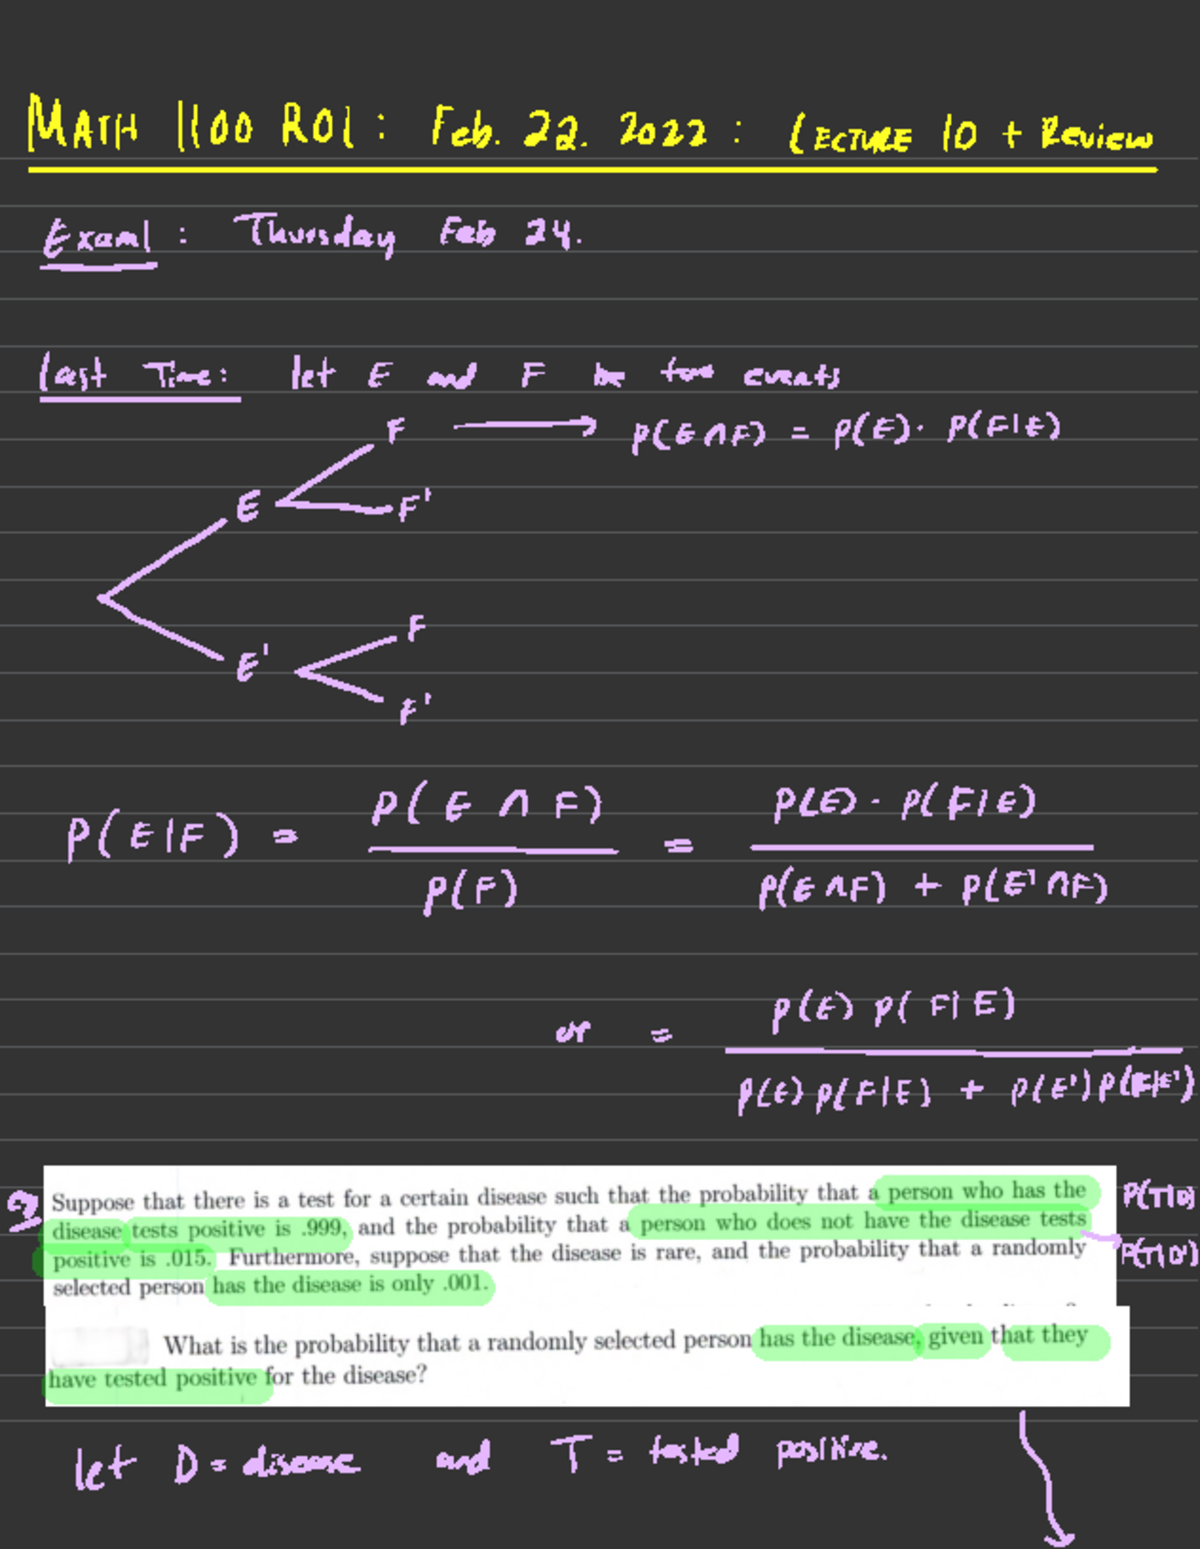 MATH 1100 R01: Feb. 22. 2022: LECTURE 10 + Review
Exam1: Thursday Feb 24.
Last Time: let E and F be two events
F → P(E ∩ F) = P(E) · P(F|E)
E F'
E' F
F'
P(E|F) = P(E ∩ F) / P(F) = P(E) · P(F|E) / P(E ∩ F) + P(E' ∩ F)
or = P(E) P(F|E) / P(E) P(F|E) + P(E') P(F|E')
Suppose that there is a test for a certain disease such that the probability that a person who has the P(T|D)
disease tests positive is .999, and the probability that a person who does not have the disease tests
positive is .015. Furthermore, suppose that the disease is rare, and the probability that a randomly P(T|D')
selected person has the disease is only .001.
What is the probability that a randomly selected person has the disease, given that they
have tested positive for the disease?
let D = disease and T = tested positive.